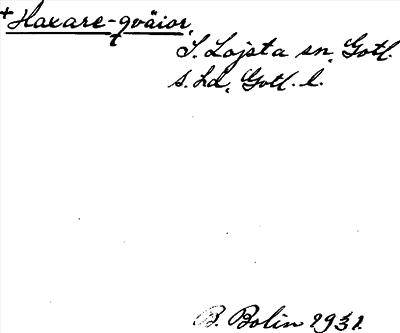 +Haxare-qväior,
S. Lojsta sn, Gotl.
s. hd, Gotl. l.
B. Bolin 1931.